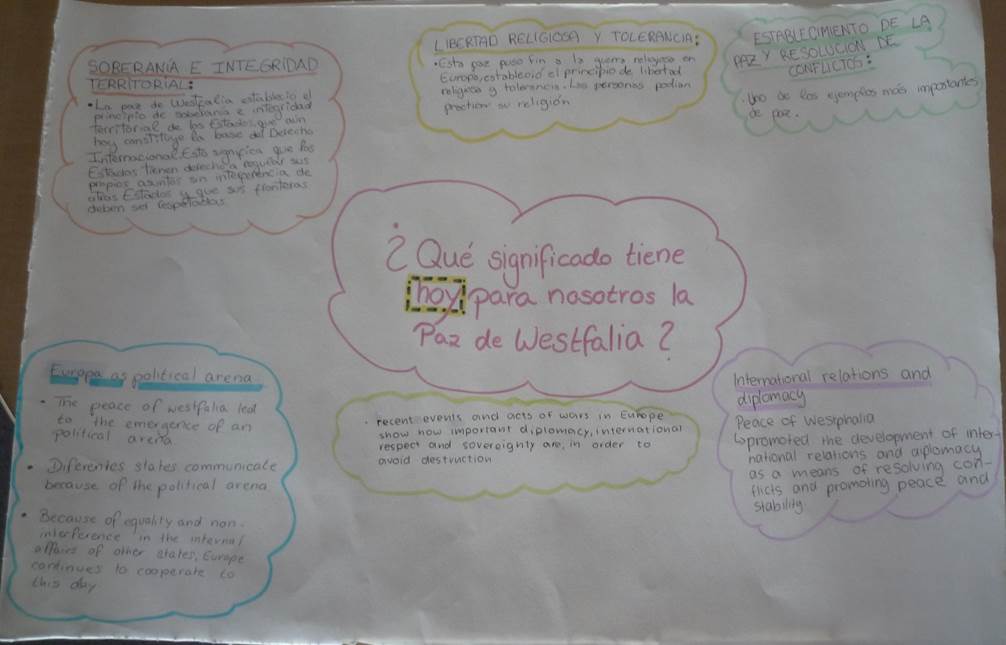 SOBERANÍA E INTEGRIDAD
TERRITORIAL:
• La paz de Westfalia estableció el
principio de soberanía e integridad
territorial de los Estados, que aún
hoy constituye la base del Derecho
Internacional. Esto significa que los
Estados tienen derecho a regular sus
propios asuntos sin interferencia de
otros Estados y que sus fronteras
deben ser respetadas.
LIBERTAD RELIGIOSA Y TOLERANCIA:
• Esta paz puso fin a la guerra religiosa en
Europa, estableció el principio de libertad
religiosa y tolerancia. Las personas podían
practicar su religión
ESTABLECIMIENTO DE LA
PAZ Y RESOLUCIÓN DE
CONFLICTOS:
. Uno de los ejemplos más importantes
de paz.
¿Qué significado tiene
hoy para nosotros la
Paz de Westfalia?
Europa as political arena
• The peace of westfalia led
to the emergence of an
political arena.
• Diferentes states communicate
because of the political arena
• Because of equality and non-
interference in the internal
affairs of other states, Europe
continues to cooperate to
this day
. recent events and acts of wars in Europe
show how important diplomacy, international
respect and sovereignty are, in order to
avoid destruction
International relations and
diplomacy
Peace of Westphalia
↳ promoted the development of inter-
national relations and diplomacy
as a means of resolving con-
flicts and promoting peace and
stability.